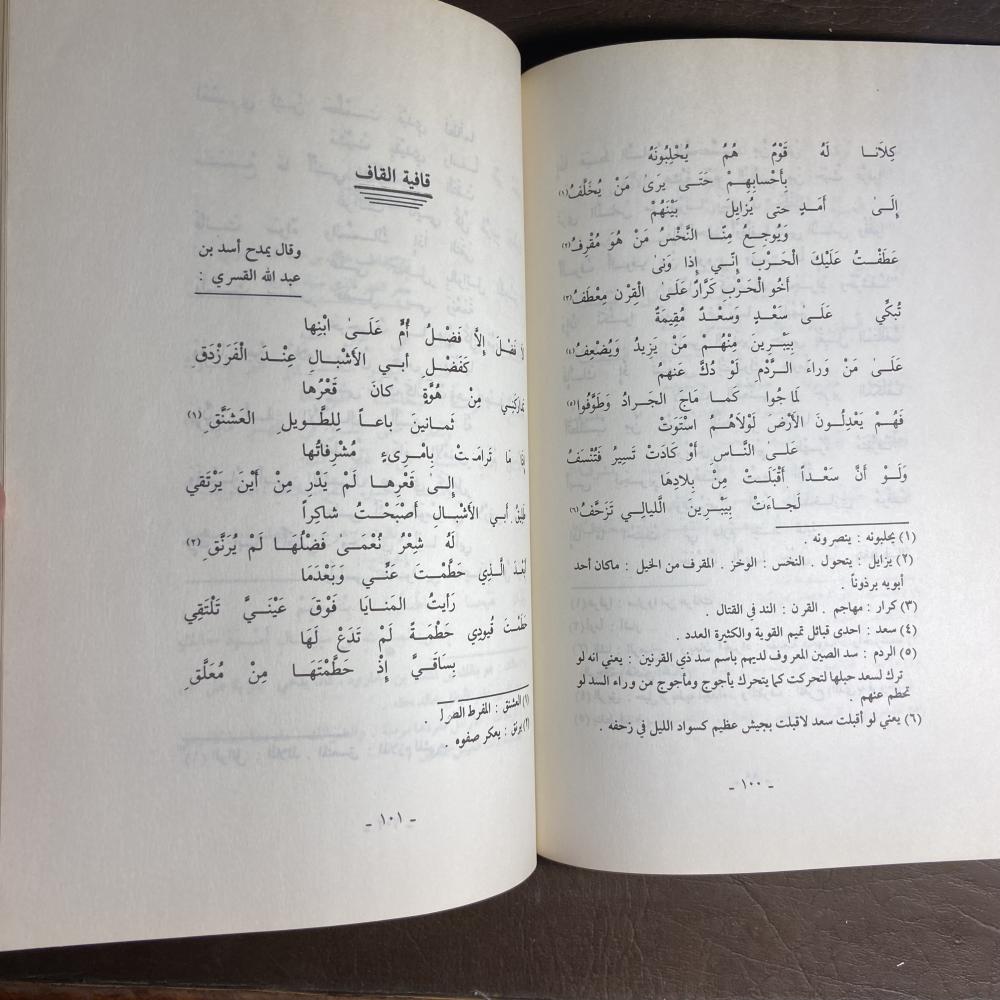 كِلَانَا لَهُ قَوْمٌ هُمُ يُحْلِبُونَهُ
بِأَحْسابِهِمْ حَتَّى يَرَىٰ مَنْ يُخَلَّفُ (١)
إِلَىٰ أَمَدٍ حتى يُزايِلَ بَيْنَهُمْ
وَيُوجِعُ مِنَّا النَّخْسُ مَنْ هُوَ مُقْرِفُ (٢)
عَطَفْتُ عَلَيْكَ الْحَرْبَ إِنِّي إِذا وَنَىٰ
أَخُو الْحَرْبِ كَرَّارٌ عَلَى الْقِرْنِ مِعْطَفُ (٣)
تُبَكِّي عَلَىٰ سَعْدٍ وَسَعْدٌ مُقِيمَةٌ
بِيَبْرِينَ مِنْهُمْ مَنْ يَزِيدُ وَيُضْعِفُ (٤)
عَلَى مَنْ وَرَاءَ الرَّدْمِ لَوْ دُكَّ عنهمُ
لَماجُوا كَما مَاجَ الجَرادُ وَطَوَّفُوا (٥)
فَهُمْ يَعْدِلُونَ الأَرْضَ لَوْلاهُمُ اسْتَوَتْ
عَلَى النَّاسِ أَوْ كَادَتْ تَسِيرُ فَتُنْسَفُ
وَلَوْ أَنَّ سَعْداً أَقْبَلَتْ مِنْ بِلادِهَا
لَجاءَتْ بِيَبْرِينَ اللَّيالِي تَزَحَّفُ (٦)
(١) يحلبونه : ينصرونه .
(٢) يزايل : يتحول . النخس : الوخز . المقرف من الخيل : ماكان أحد
أبويه برذوناً .
(٣) كرار : مهاجم . القرن : الند في القتال .
(٤) سعد : احدى قبائل تميم القوية والكثيرة العدد .
(٥) الردم : سد الصين المعروف لديهم باسم سد ذي القرنين : يعني انه لو
ترك لسعد حبلها لتحركت كما يتحرك يأجوج ومأجوج من وراء السد لو
تحطم عنهم .
(٦) يعني لو أقبلت سعد لاقبلت بجيش عظيم كسواد الليل في زحفه .
- ١٠٠ -
قافية القاف
وقال يمدح أسد بن
عبد الله القسري :
لا فَضْلَ إِلَّا فَضْلُ أُمٍّ عَلَىٰ ابْنِها
كَفَضْلِ أبي الأَشْبالِ عِنْدَ الْفَرَزْدَقِ
مِنْ هُوَّةٍ كانَ قَعْرُها
ثَمانينَ باعاً لِلطَّويلِ العَشَنَّقِ (١)
إِذَا مَا تَرامَتْ بِامْرِىءٍ مُشْرِفاتُها
إِلىٰ قَعْرِها لَمْ يَدْرِ مِنْ أَيْنَ يَرْتَقي
طَلِيقُ أَبي الأَشْبالِ أَصْبَحْتُ شاكِراً
لَهُ شِعْرُ نُعْمَىٰ فَضْلُهَا لَمْ يُرَنَّقِ (٢)
أَبَعْدَ الَّذِي حَطَّمْتَ عَنِّي وَبَعْدَمَا
رَأَيتُ المَنايَا فَوْقَ عَيْنَيَّ تَلْتَقِي
حَطَمْتَ قُيودِي حَطْمَةً لَمْ تَدَعْ لَهَا
بِسَاقَيَّ إِذْ حَطَّمْتَهَا مِنْ مُعَلَّقِ
(١) العشنق : المفرط
(٢) يرنق : يعكر صفوه .
- ١٠١ -